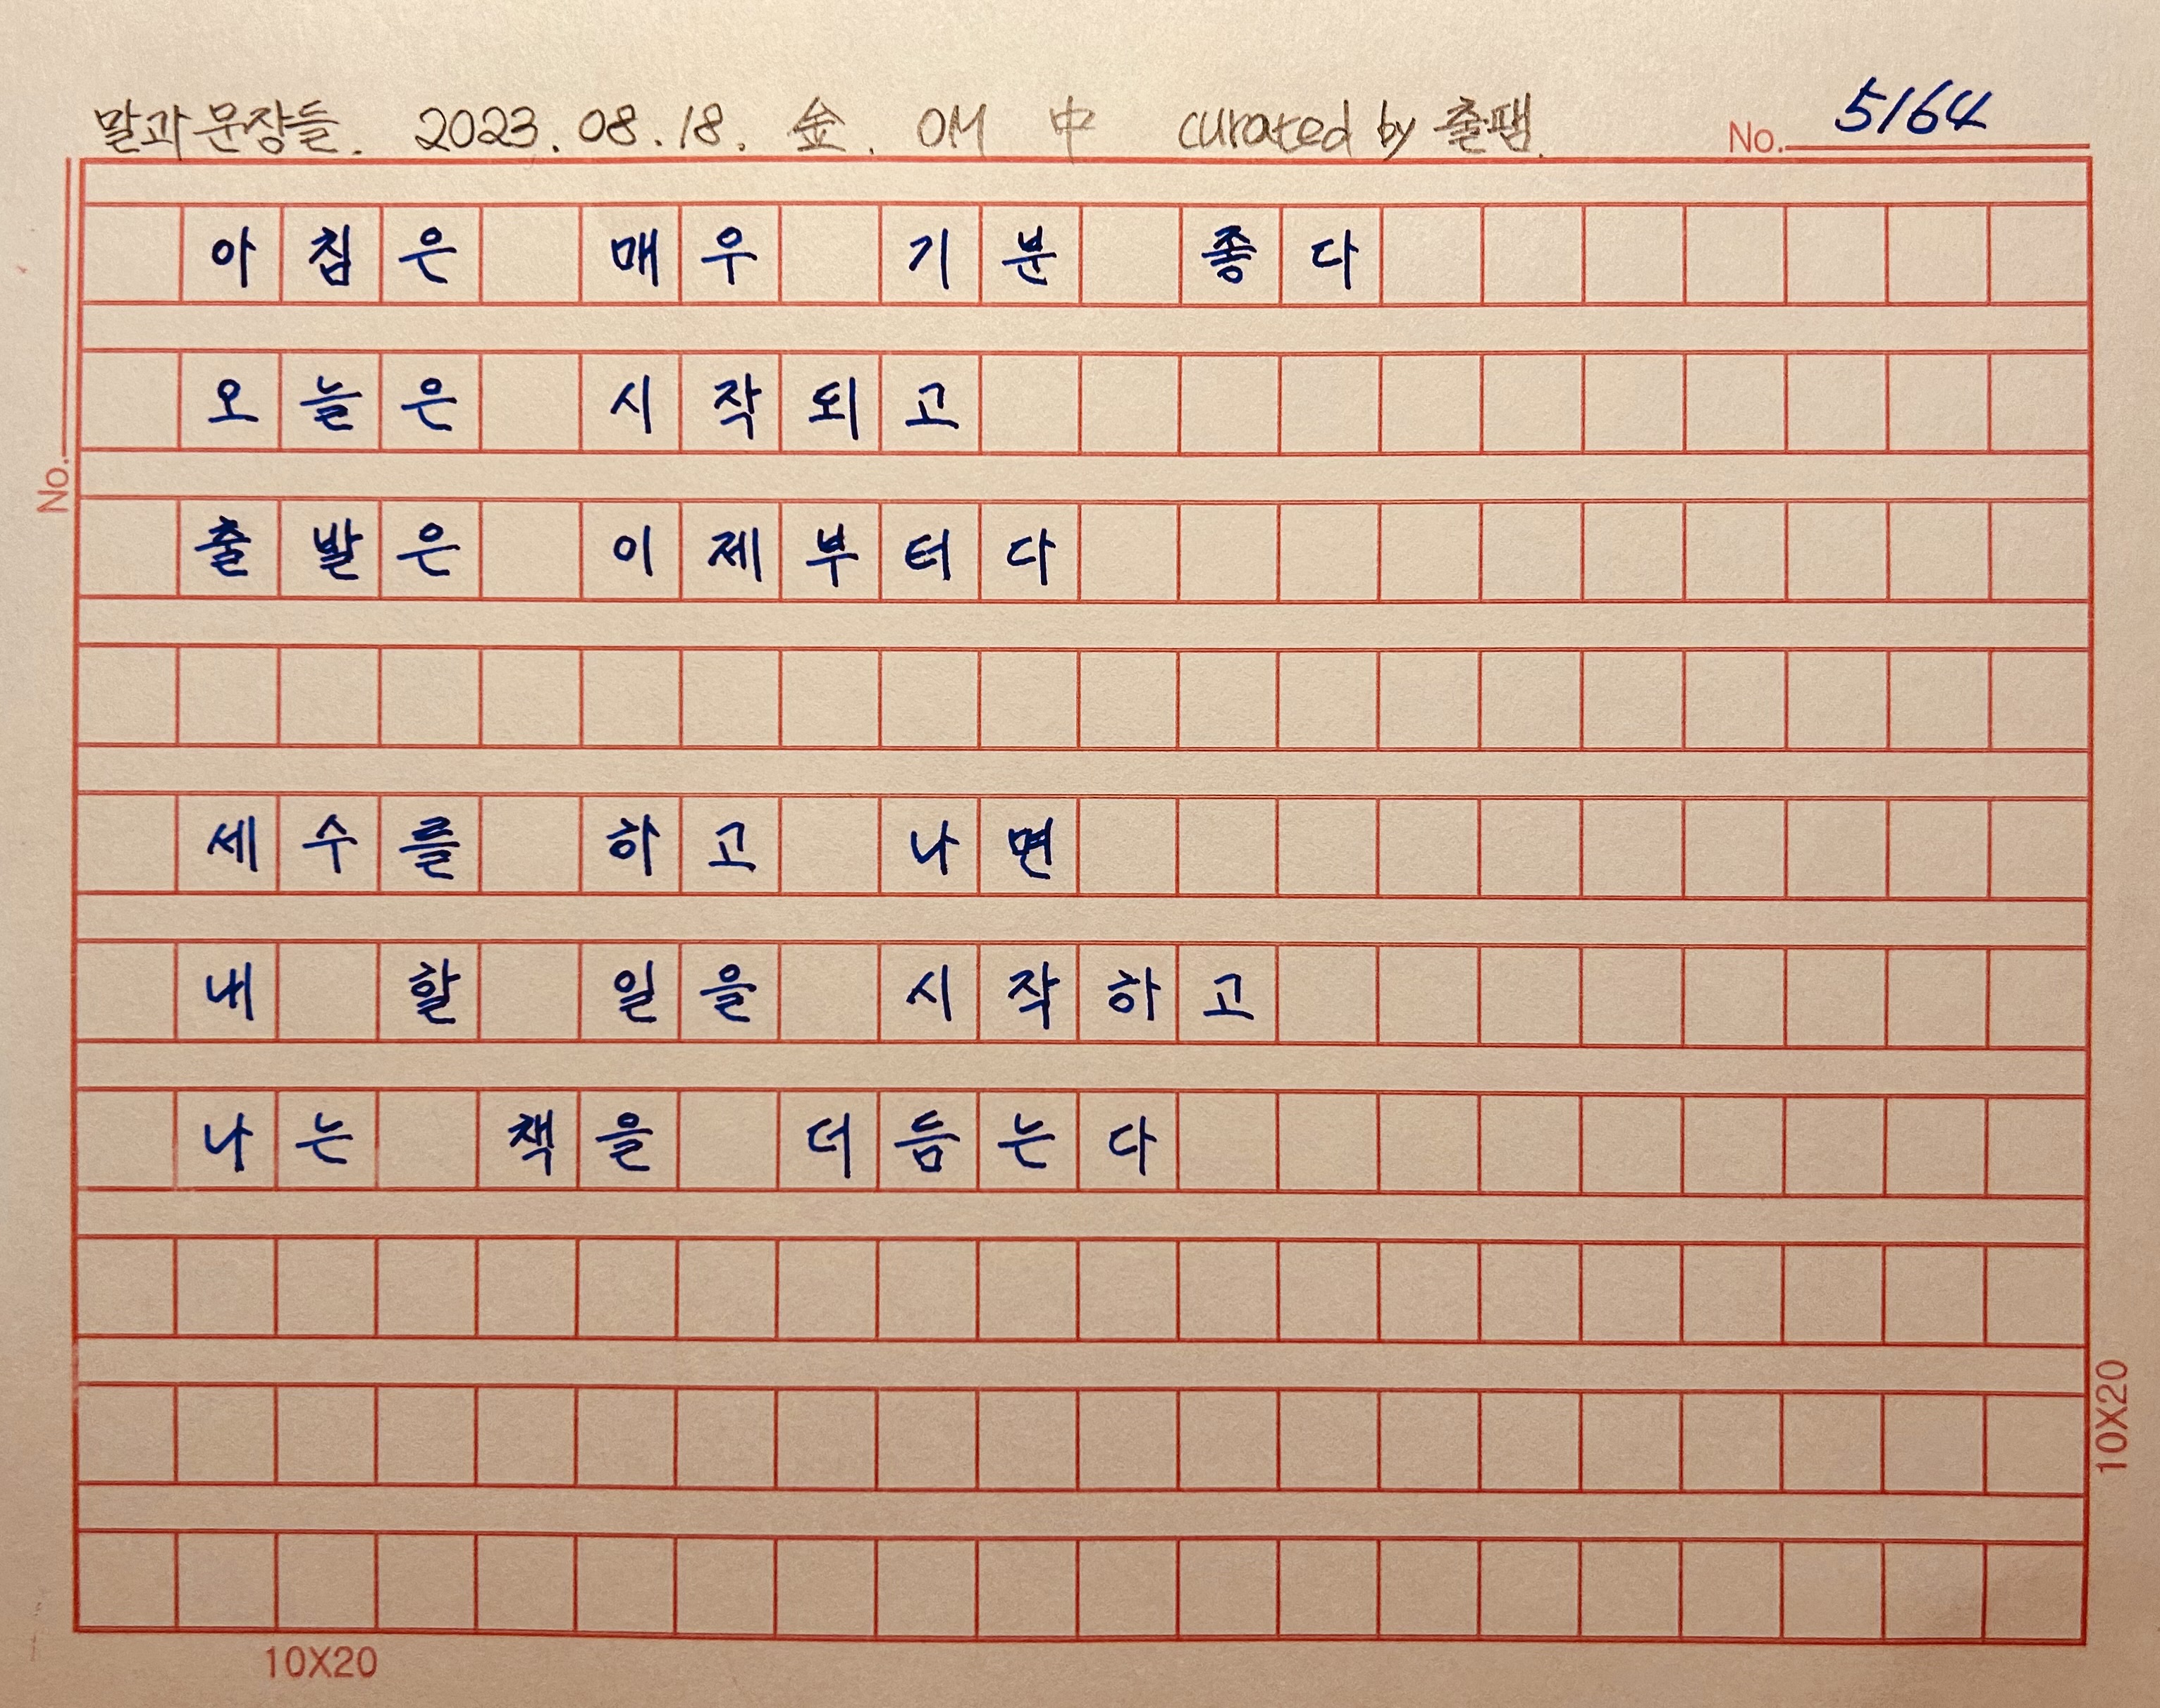 말과 문장들. 2023. 08. 18. 金. OM 中 curated by 출팸. No. 5164
아침은 매우 기분 좋다
오늘은 시작되고
출발은 이제부터다
No.
세수를 하고 나면
내 할 일을 시작하고
나는 책을 더듬는다
10X20
10X20